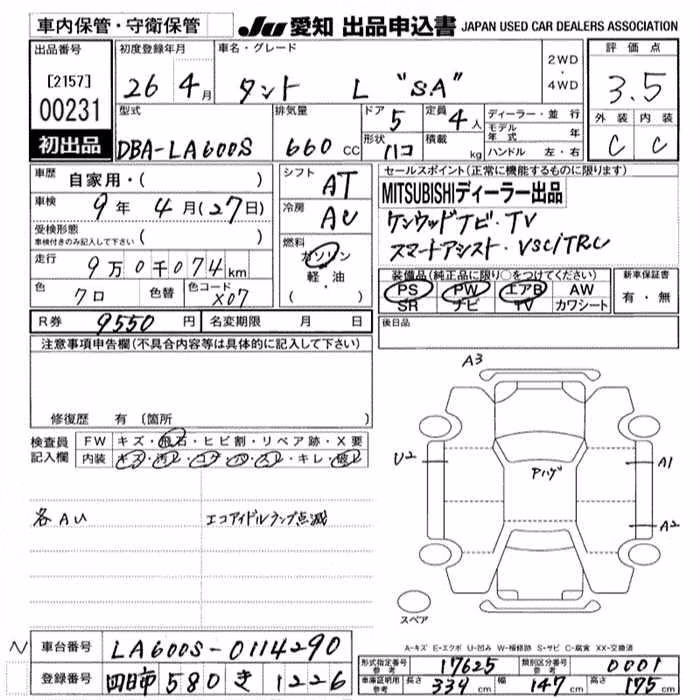 車内保管・守衛保管
JU 愛知 出品申込書 JAPAN USED CAR DEALERS ASSOCIATION
出品番号
[2157]
00231
初出品
初度登録年月
26 4月
車名・グレード
タント L "SA"
2WD
・
4WD
評価点
3.5
外装 内装
C C
型式
DBA-LA600S
排気量
660 CC
ドア
5
形状
ハコ
定員
4人
積載
kg
ディーラー・並行
モデル年式 年
ハンドル 左・右
車歴
自家用・( )
車検
9年 4月(27日)
受検形態
車検付きのみ記入して下さい ( )
走行
9万0千074km
色
クロ
色替
色コード
X07
シフト
AT
冷房
AC
燃料
ガソリン
軽・油
( )
セールスポイント(正常に機能するものに限ります)
MITSUBISHIディーラー出品
ケンウッドナビ・TV
スマートアシスト・VSC/TRC
装備品(純正品に限り○をつけてください)
PS PW エアB AW
SR ナビ TV カワシート
新車保証書
有・無
R券 9550円 名変期限 月 日
後日品
注意事項申告欄(不具合内容等は具体的に記入して下さい)
修復歴 有(箇所 )
検査員記入欄
FW キズ・飛石・ヒビ割・リペア跡・X要
内装 キズ・汚レ・コゲ・穴・スレ・キレ・破レ
各AU エコアイドルランプ点滅
A3
U2
Pハゲ
A1
A2
スペア
A-キズ E-エクボ U-凹み W-補修跡 S-サビ C-腐食 XX-交換済
車台番号 LA600S-0114290
登録番号 四日市 580 き 1226
形式指定番号 参考 17625 類別区分番号 参考 0001
車庫証明用 参考 長さ 339cm 幅 147cm 高さ 175cm